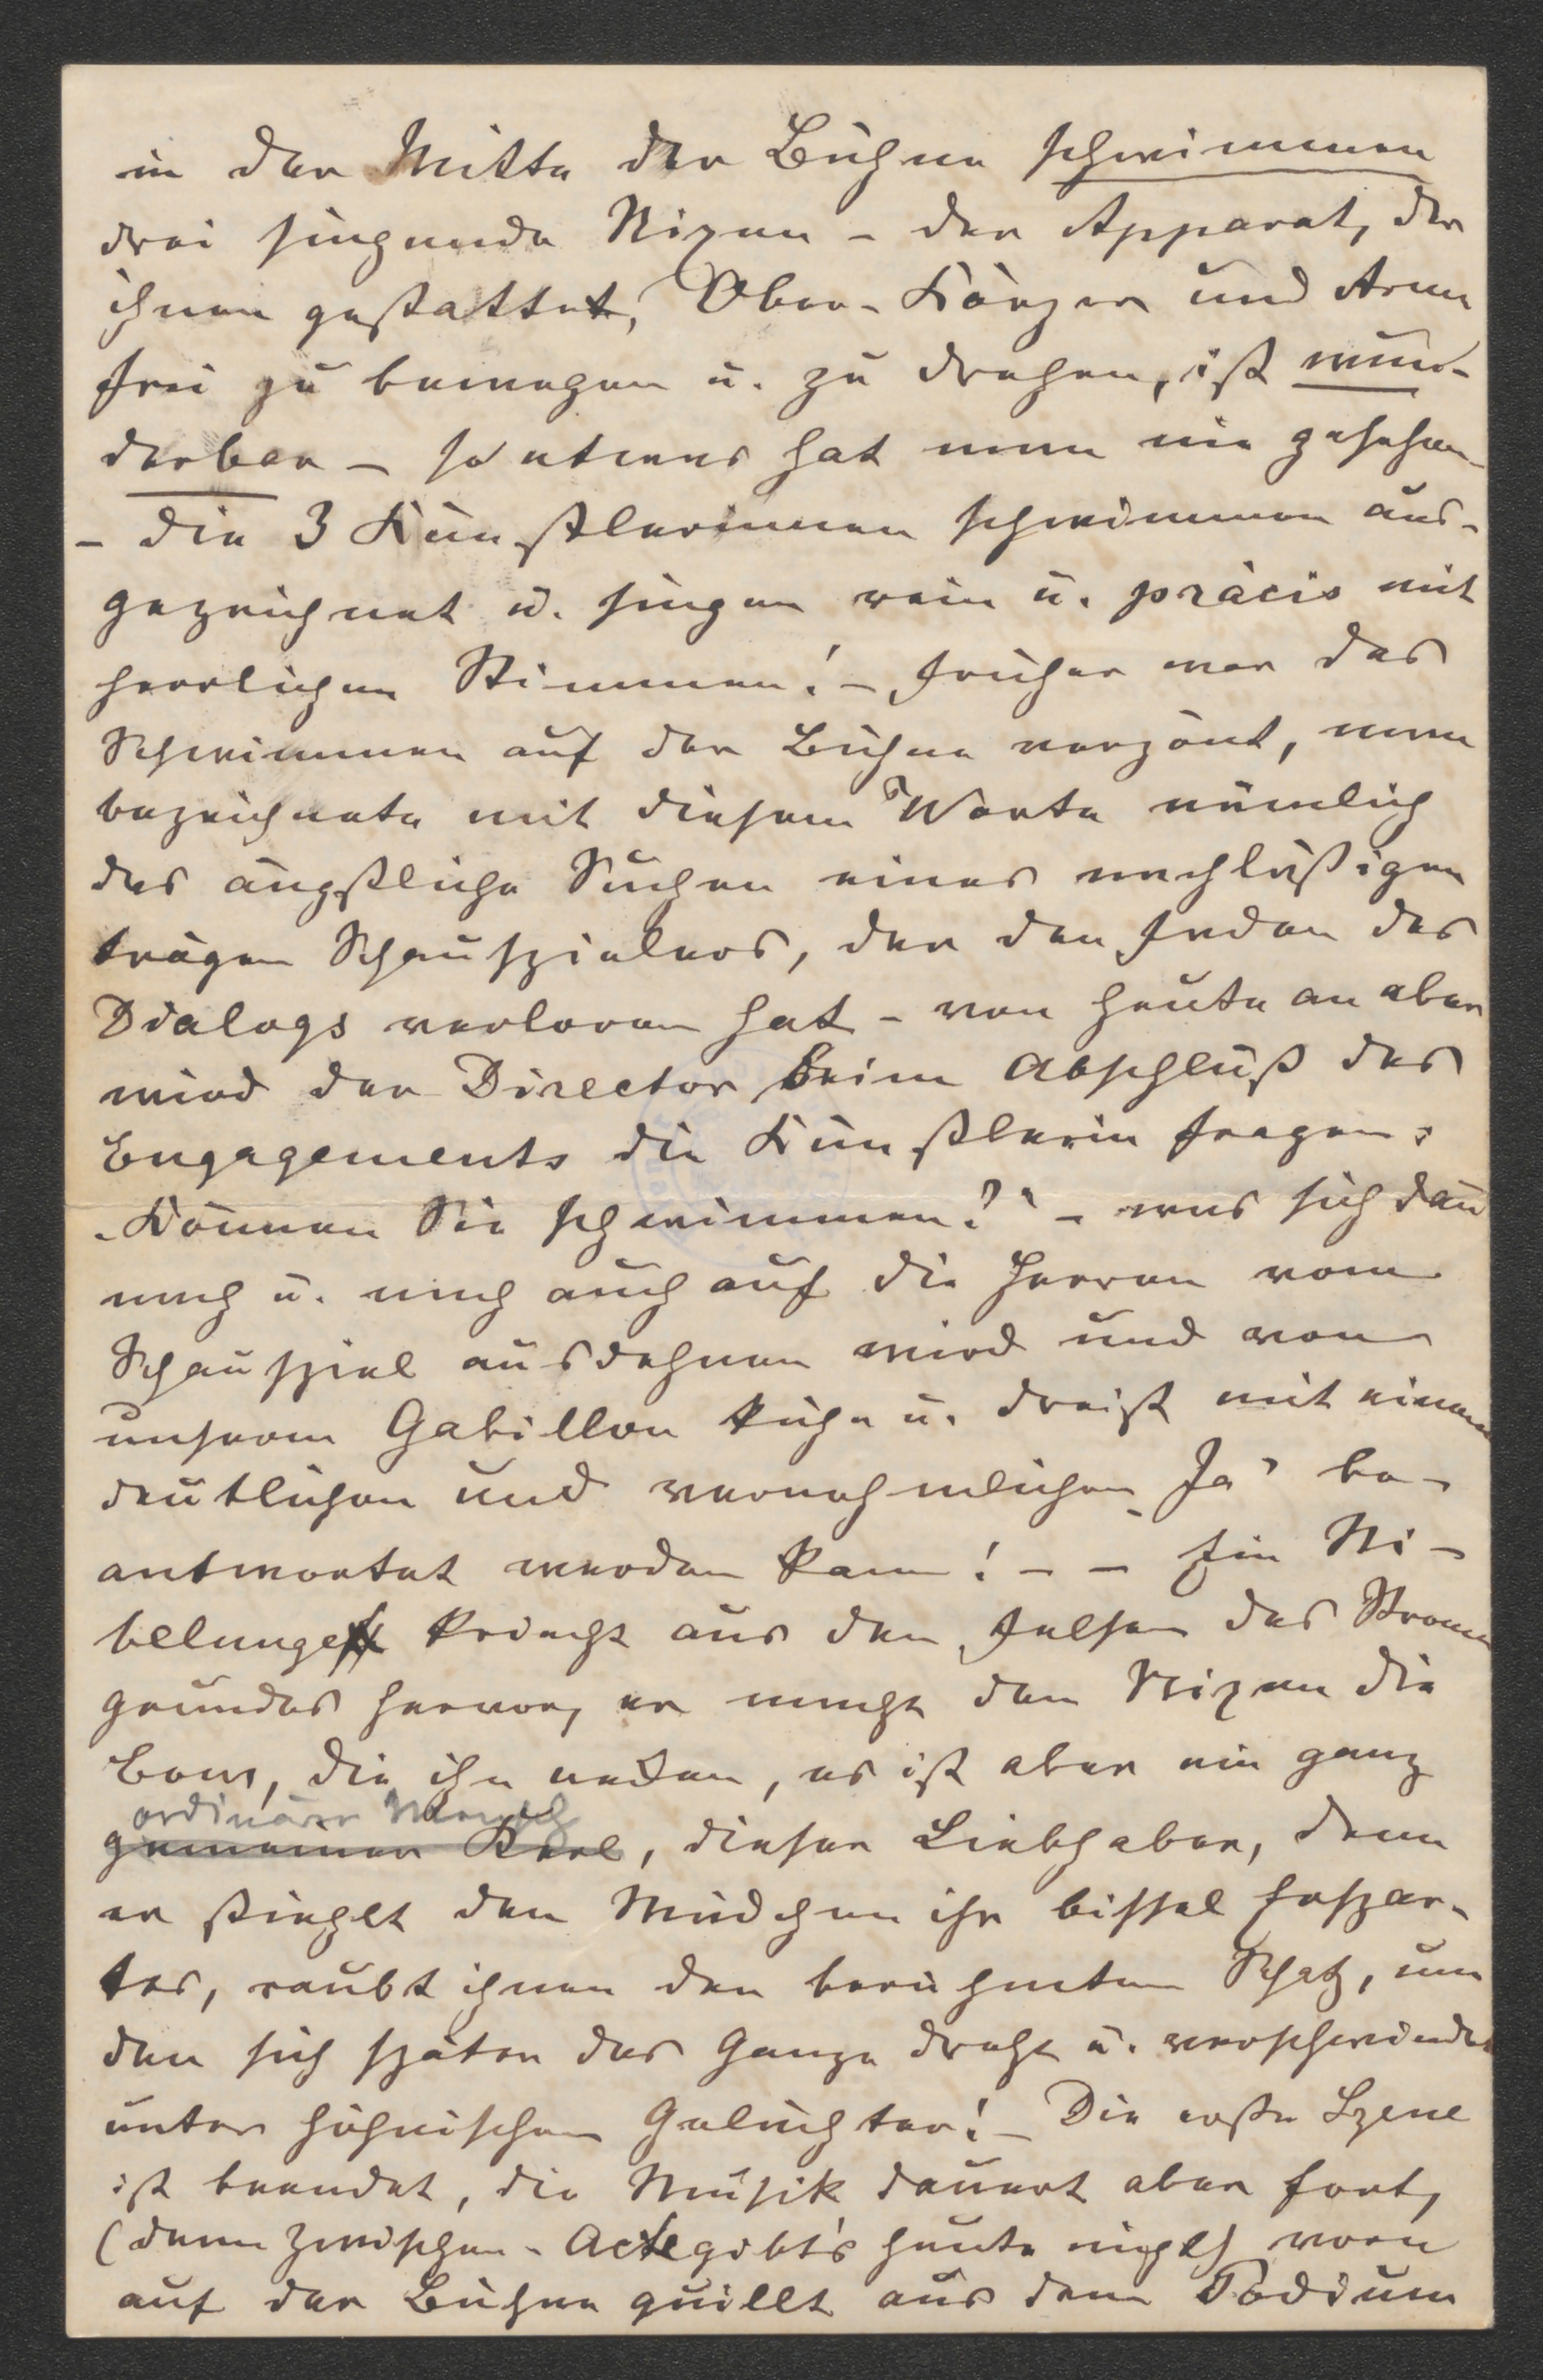 in der Mitte der Bühne schwimmen
drei singende Nixen – der Apparat, der
ihnen gestattet, Ober-Körper und Arme
frei zu bewegen u. zu drehen, ist wun-
derbar – so etwas hat man nie gesehen
– die 3 Künstlerinnen schwimmen aus-
gezeichnet u. singen rein u. präcis mit
herrlichen Stimmen! – früher war das
Schwimmen auf der Bühne verpönt, man
bezeichnete mit diesem Worte nämlich
das ängstliche Suchen eines nachläßigen
trägen Schauspielers, der den Faden des
Dialogs verloren hat – von heute an aber
wird der Director beim Abschluß des
Engagements die Künstlerin fragen:
„Können Sie schwimmen?“ – was sich dann
nach u. nach auch auf die Herren vom
Schauspiel ausdehnen wird und von
unserem Gabillon kühn u. dreist mit einem
deutlichen und vernehmlichen „Ja“ be-
antwortet werden kann! – – Ein Ni-
belunge kriecht aus den Felsen des Strom
grundes hervor, er macht den Nixen die
Cour, die ihn necken, es ist aber ein ganz
ordinärer Mensch
gemeiner Kerl, dieser Liebhaber, denn
er stiehlt den Mädchen ihr bissel Erspar-
tes, raubt ihnen den berühmten Schatz, um
den sich später das Ganze dreht u. verschwindet
unter höhnischem Gelächter! – Die erste Szene
ist beendet, die Musik dauert aber fort,
(denn Zwischen-Acte gibt's heute nicht) vorn
auf der Bühne quillt aus dem Podium